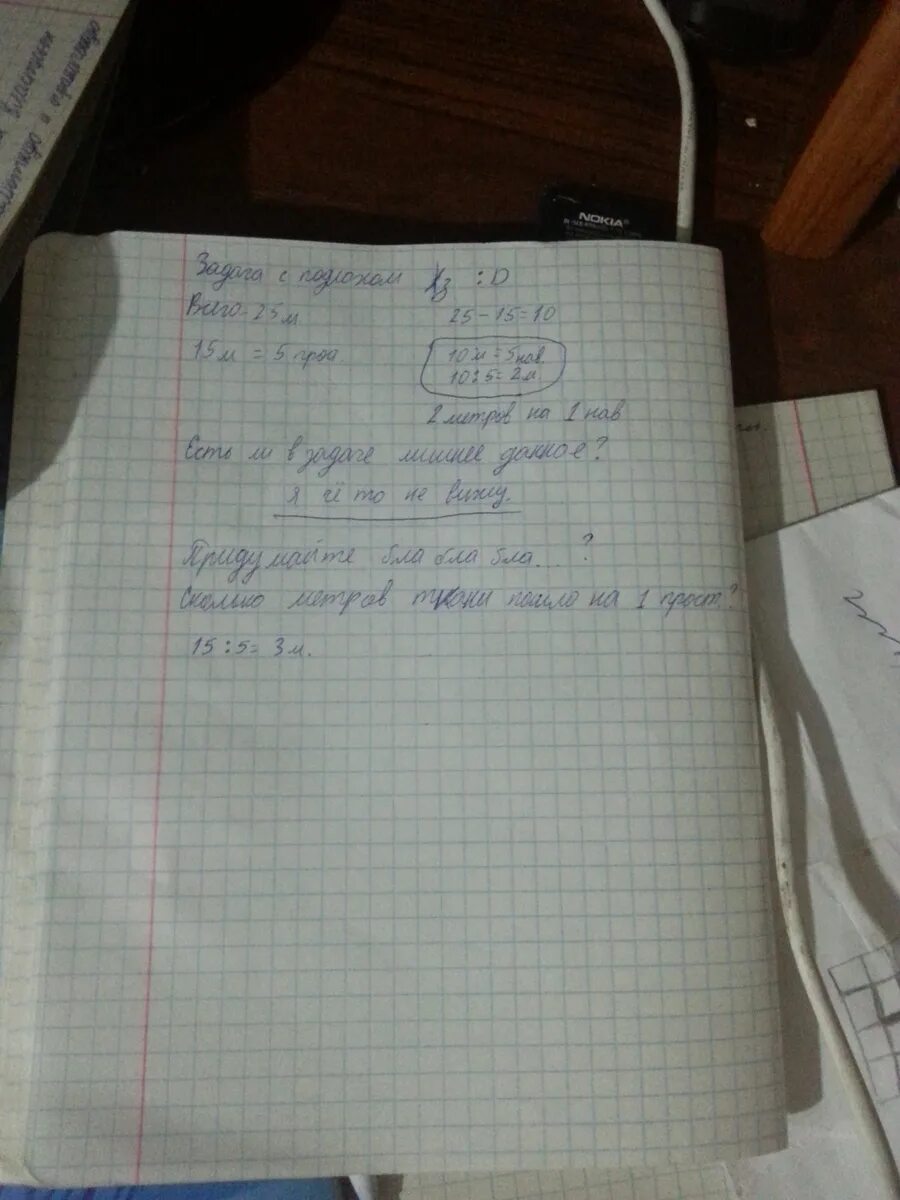 NOKIA
Задача с подлохом :D
Всего - 25м
25-15=10
15м = 5 прос.
10м = 5 нав.
10:5=2м.
2 метров на 1 нав
Есть ли в задаче лишнее данное?
я чё то не вижу.
Придумайте бла бла бла...?
Сколько метров ткани пошло на 1 прост.?
15:5= 3м.